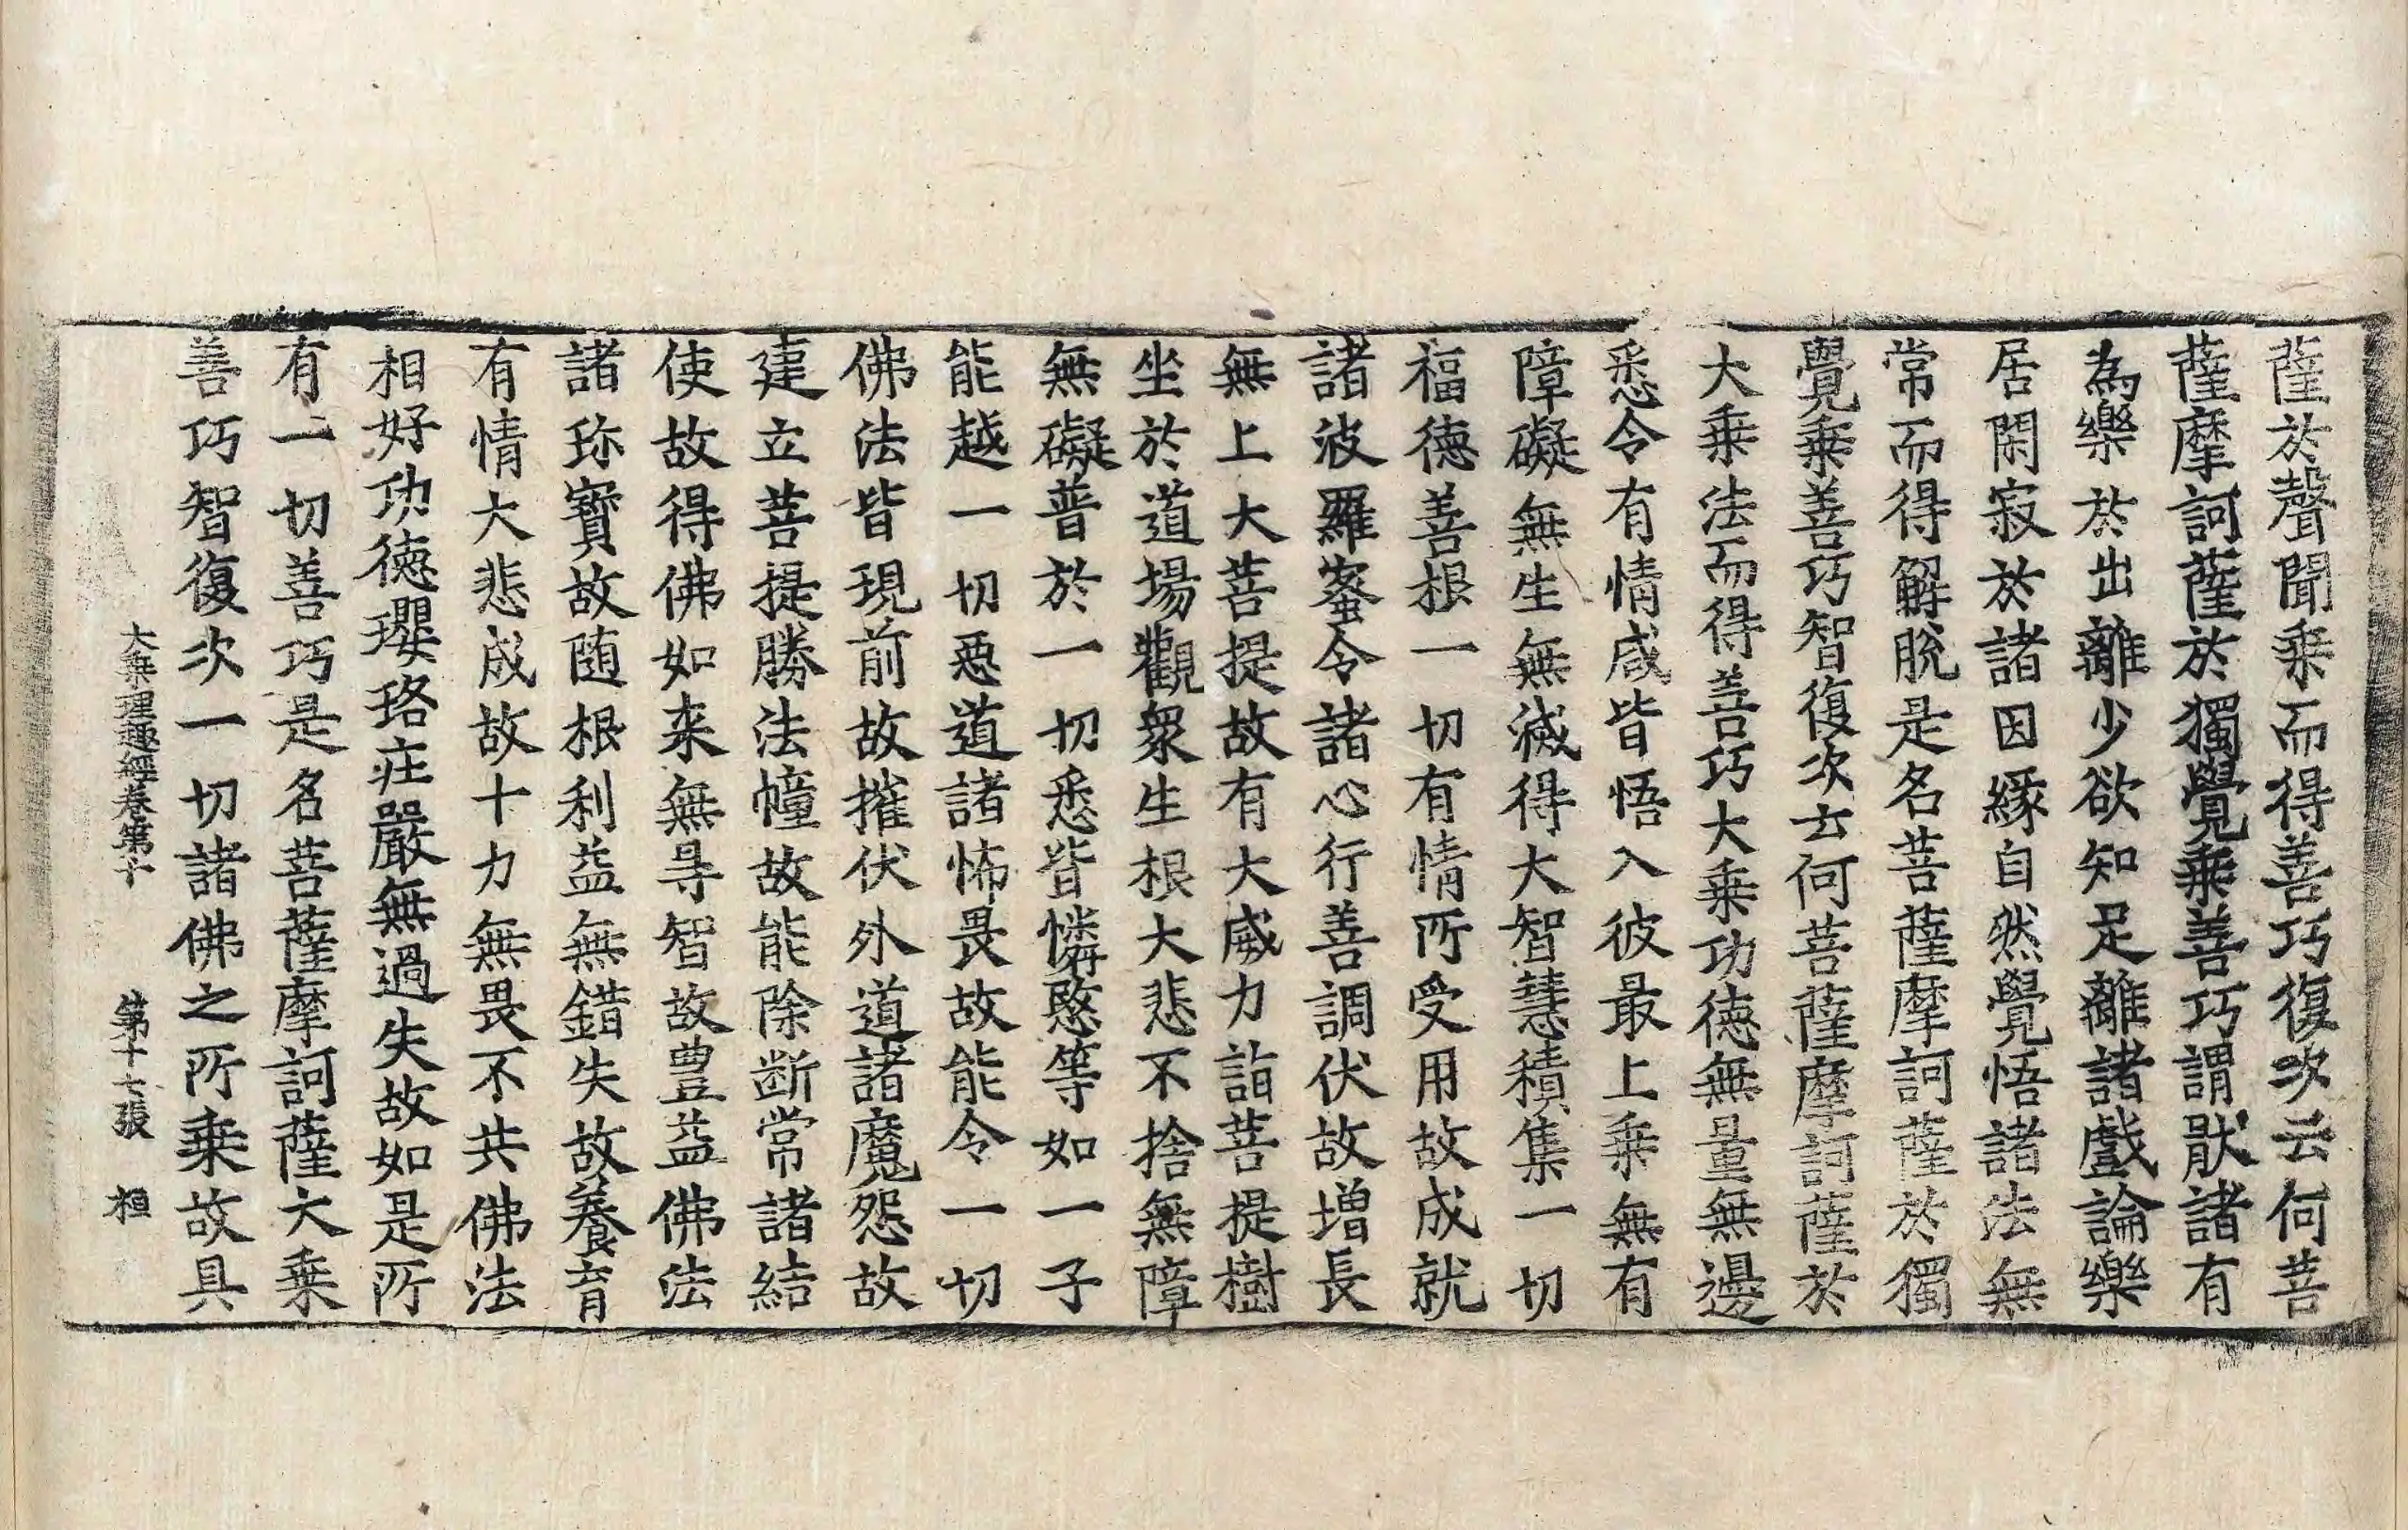 薩於聲聞乘而得善巧復次云何菩
薩摩訶薩於獨覺乘善巧謂猒諸有
為樂於出離少欲知足離諸戲論樂
居閑寂於諸因緣自然覺悟諸法無
常而得解脫是名菩薩摩訶薩於獨
覺乘善巧智復次云何菩薩摩訶薩於
大乘法而得善巧大乘功德無量無邊
悉令有情咸皆悟入彼最上乘無有
障礙無生無滅得大智慧積集一切
福德善根一切有情所受用故成就
諸波羅蜜令諸心行善調伏故增長
無上大菩提故有大威力詣菩提樹
坐於道場觀衆生根大悲不捨無障
無礙普於一切悉皆憐愍等如一子
能越一切惡道諸怖畏故能令一切
佛法皆現前故摧伏外道諸魔怨故
建立菩提勝法幢故能除断常諸結
使故得佛如来無㝵智故豊益佛法
諸珎寶故随根利益無錯失故養育
有情大悲成故十力無畏不共佛法
相好功德瓔珞莊嚴無過失故如是所
有一切善巧是名菩薩摩訶薩大乘
善巧智復次一切諸佛之所乘故具
大乘理趣經卷第十 第十七張 桓